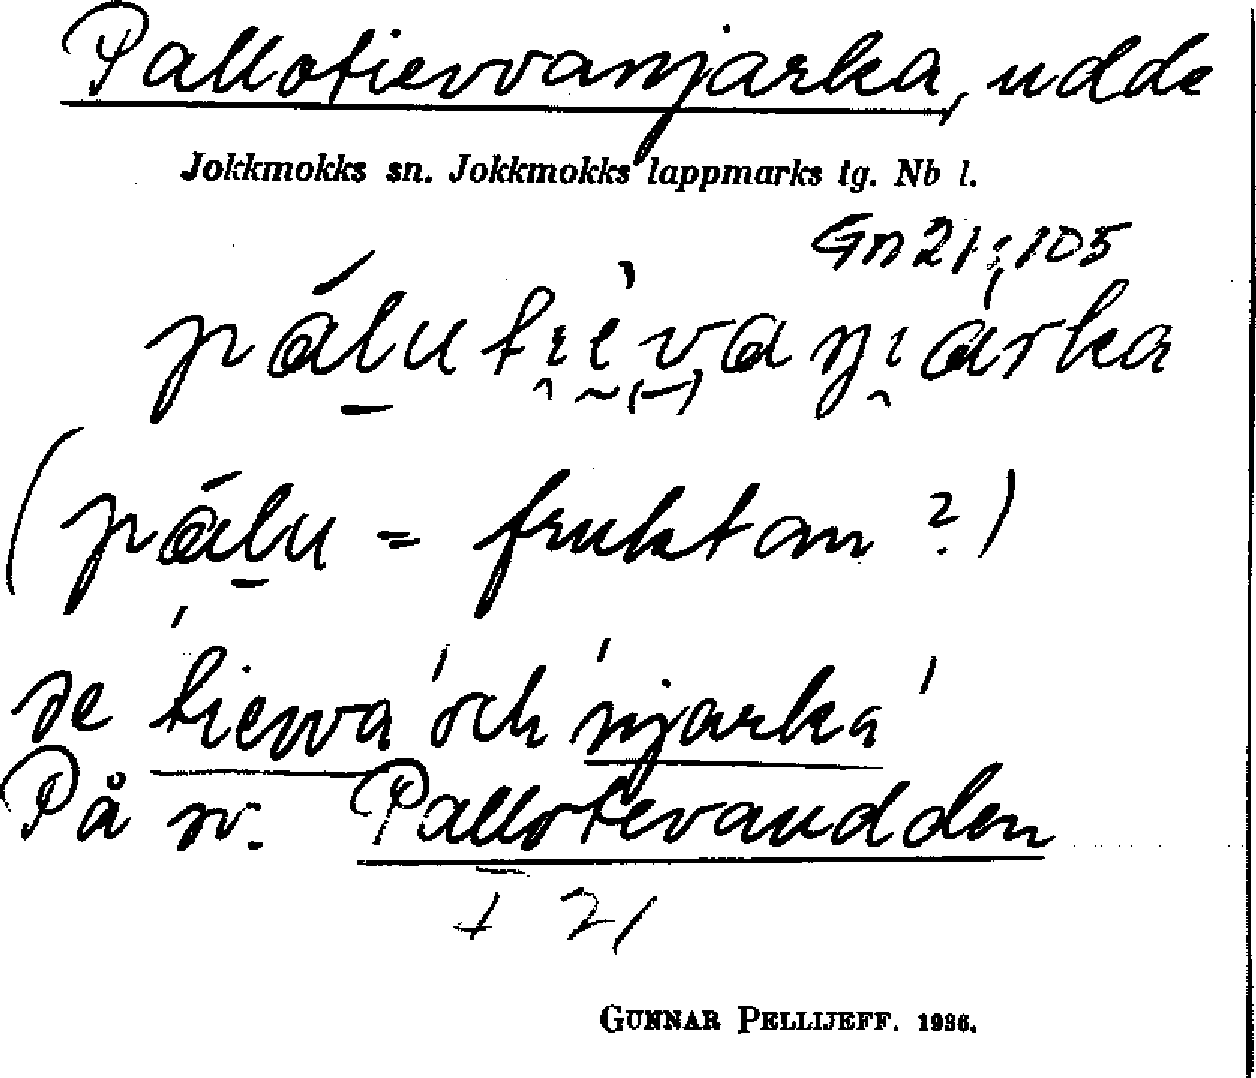 Pallotievvanjarka, udde
Jokkmokks sn. Jokkmokks lappmarks tg. Nb l.
Gn 21:105
pálutìevanjárka
(pálu = fruktan ?)
se 'tievva' och 'njarka'
På sv. Pallotievaudden
+ 21
GUNNAR PELLIJEFF. 1936.